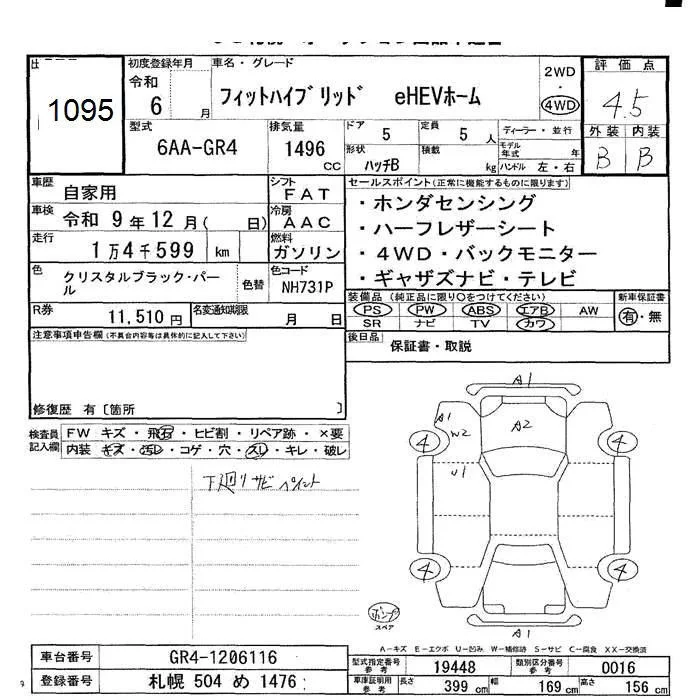 1095
初度登録年月
令和
6 月
車名・グレード
フィットハイブリッド eHEVホーム
2WD
・
4WD
評価点
4.5
外装 内装
B B
型式
6AA-GR4
排気量
1496 CC
ドア 5
定員 5 人
形状 ハッチB
積載 kg
ディーラー・並行
モデル年式 年
ハンドル 左・右
車歴 自家用
シフト FAT
車検 令和 9年12月( 日)
冷房 AAC
走行 1万4千599 km
燃料 ガソリン
色 クリスタルブラック・パール
色替
色コード NH731P
R券 11,510 円
名変通知期限 月 日
セールスポイント(正常に機能するものに限ります)
・ホンダセンシング
・ハーフレザーシート
・4WD・バックモニター
・ギャザズナビ・テレビ
装備品(純正品に限り○をつけてください)
PS PW ABS エアB AW
SR ナビ TV カワ
新車保証書
有・無
後日品 保証書・取説
注意事項申告欄(不具合内容等は具体的に記入して下さい)
修復歴 有〔箇所 〕
検査員記入欄
FW キズ・飛石・ヒビ割・リペア跡・×要
内装 キズ・汚レ・コゲ・穴・スレ・キレ・破レ
下廻りサビ ペイント
A1
A1
W2
A2
U1
4
4
4
4
A1
ポンプ
スペア
A-キズ E-エクボ U-凹み W-補修跡 S-サビ C-腐食 XX-交換済
車台番号 GR4-1206116
登録番号 札幌 504 め 1476
型式指定番号 参考 19448
類別区分番号 参考 0016
車庫証明用 参考 長さ 399 cm 幅 169 cm 高さ 156 cm